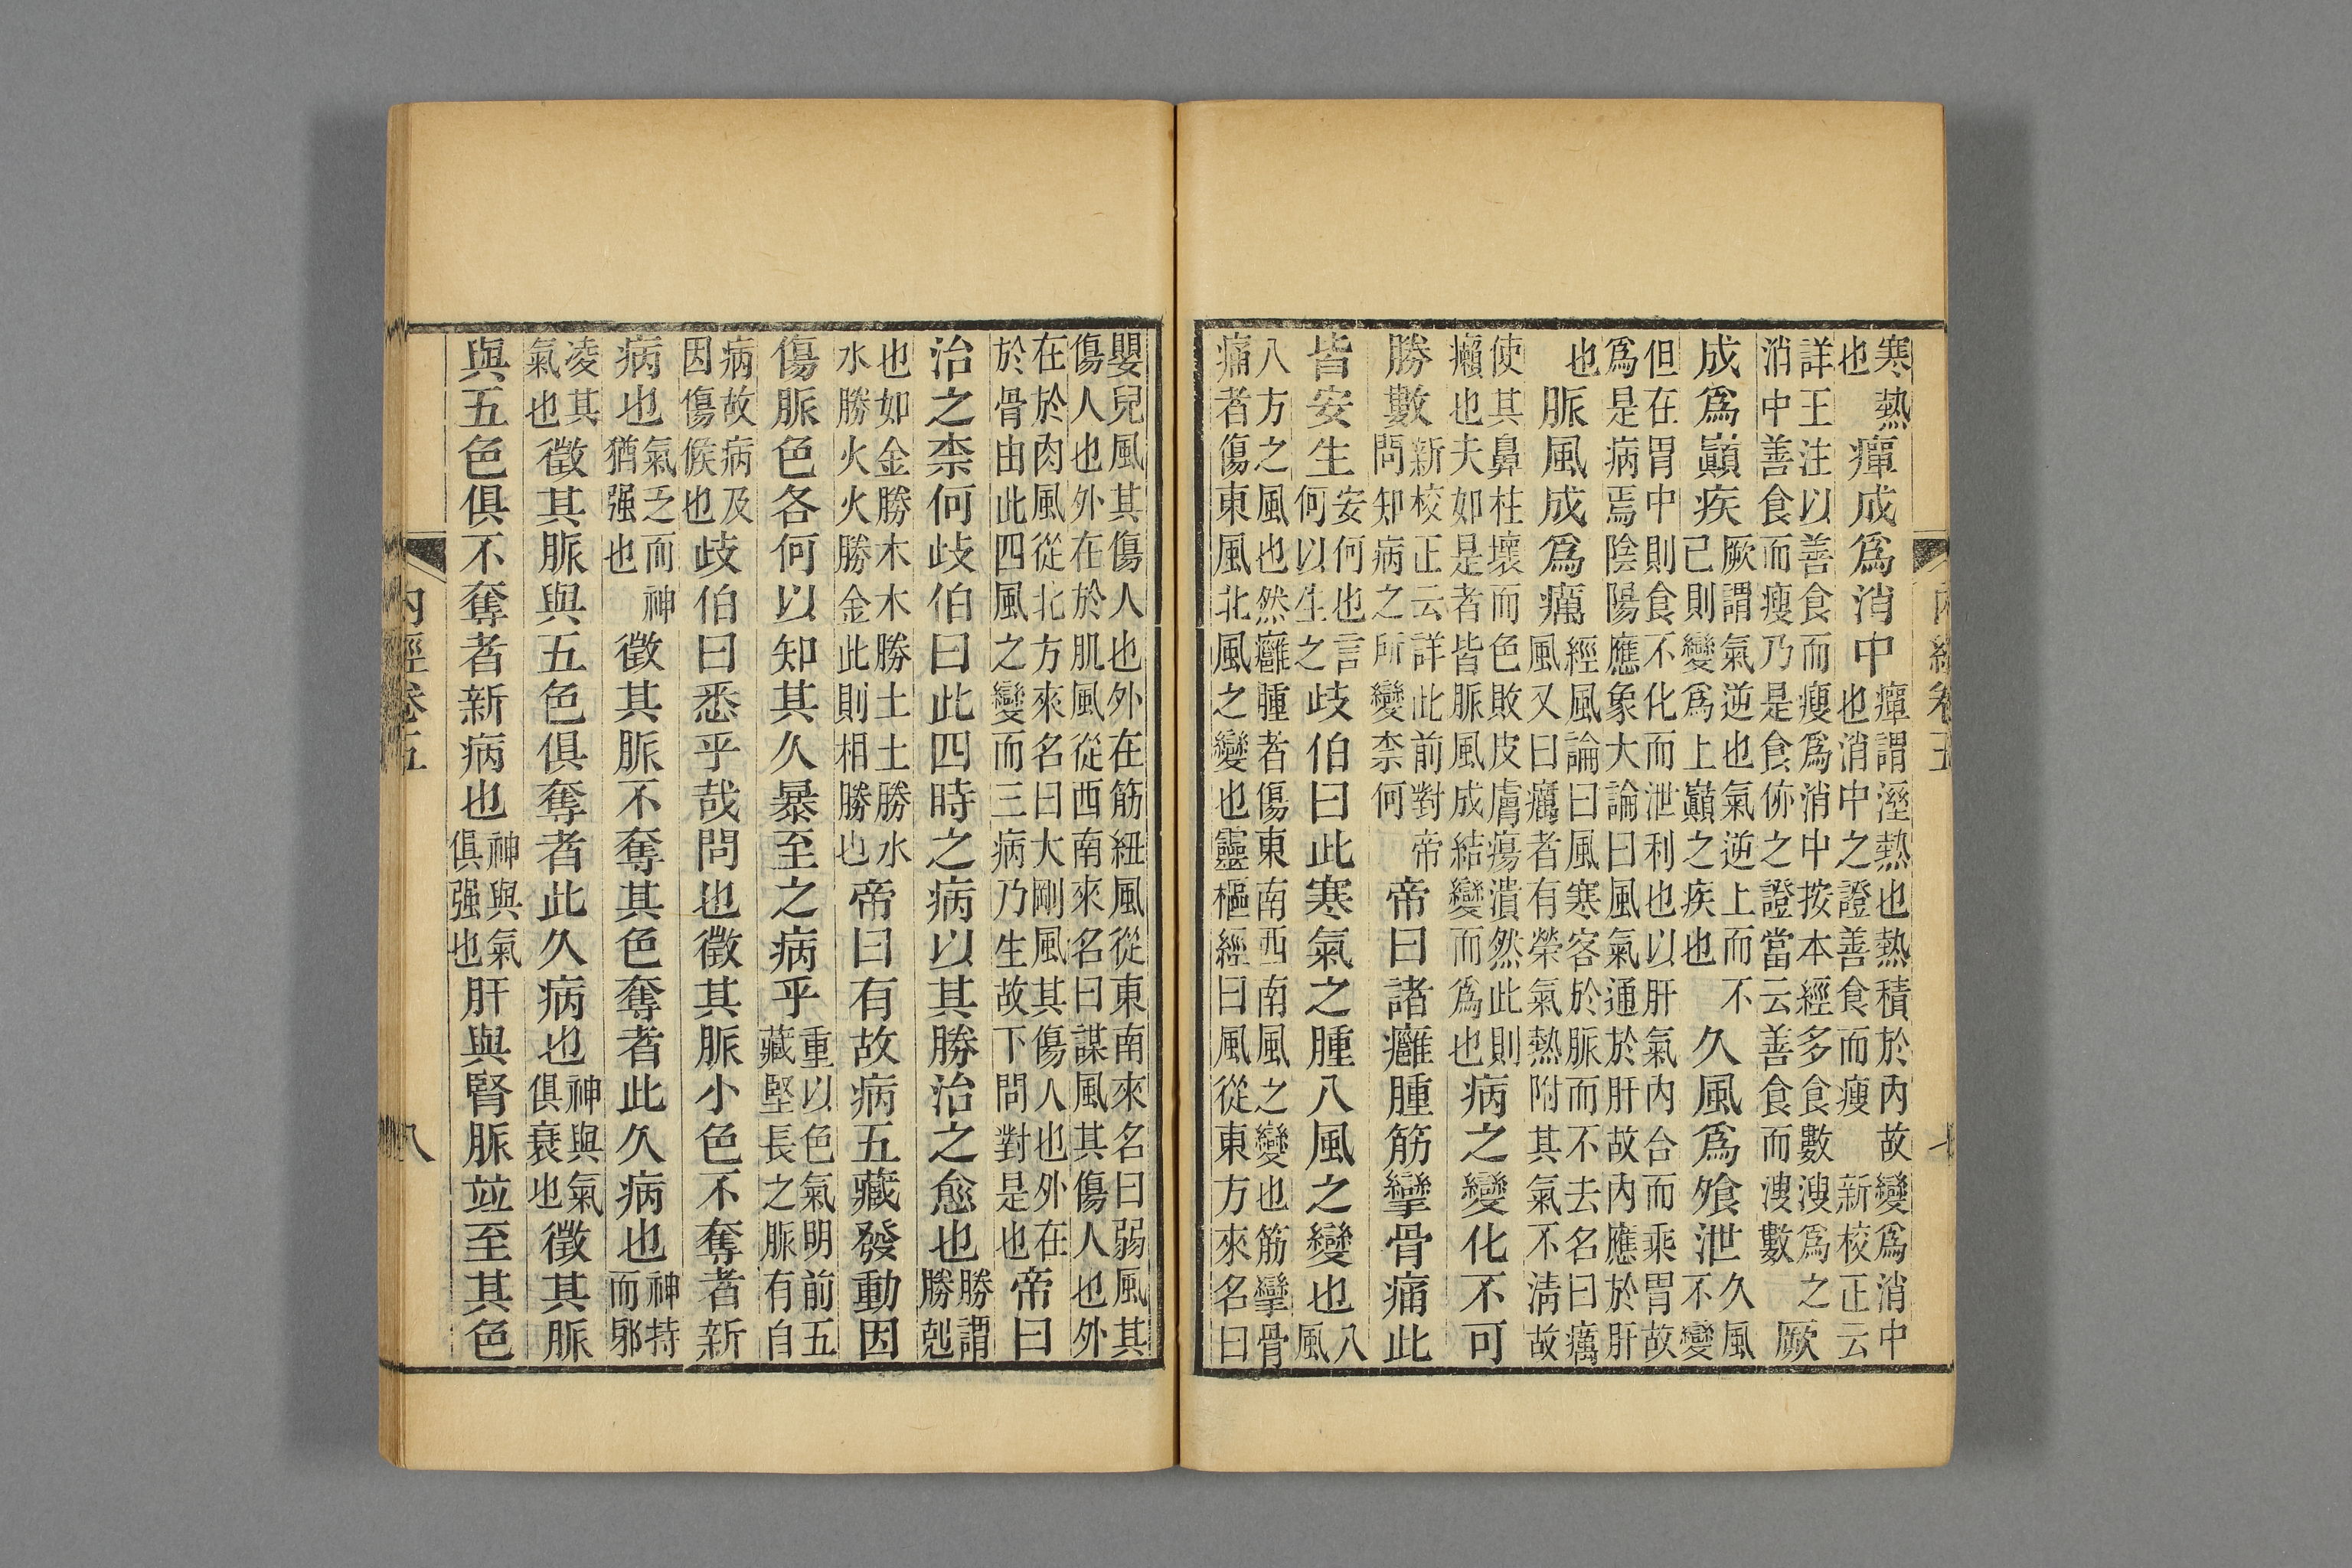 寒熱也癉成爲消中癉謂溼熱也熱積於内故變爲消中也消中之證善食而瘦 新校正云
詳王注以善食而瘦爲消中按本經多食數溲爲之消中善食而瘦乃是食㑊之證當云善食而溲數厥
成爲巔疾厥謂氣逆也氣逆上而不已則變爲上巔之疾也久風爲飧泄久風不變
但在胃中則食不化而泄利也以肝氣内合而乘胃故爲是病焉陰陽應象大論曰風氣通於肝故内應於肝
也脈風成爲癘經風論曰風寒客於脈而不去名曰癘風又曰癘者有榮氣熱附其氣不清故
使其鼻柱壞而色敗皮膚瘍潰然此則癩也夫如是者皆脈風成結變而爲也病之變化不可
勝數新校正云詳此前對帝問知病之所變柰何帝曰諸癰腫筋攣骨痛此
皆安生安何也言何以生之歧伯曰此寒氣之腫八風之變也八風
八方之風也然癰腫者傷東南西南風之變也筋攣骨痛者傷東風北風之變也靈樞經曰風從東方來名曰
嬰兒風其傷人也外在筋紐風從東南來名曰弱風其傷人也外在於肌風從西南來名曰謀風其傷人也外
在於肉風從北方來名曰大剛風其傷人也外在於骨由此四風之變而三病乃生故下問對是也帝曰
治之柰何歧伯曰此四時之病以其勝治之愈也勝謂勝剋
也如金勝木木勝土土勝水水勝火火勝金此則相勝也帝曰有故病五藏發動因
傷脈色各何以知其久暴至之病乎重以色氣明前五藏堅長之脈有自
病故病及因傷候也歧伯曰悉乎哉問也徵其脈小色不奪者新
病也氣乏而神猶强也徵其脈不奪其色奪者此久病也神持而邪
凌其氣也徵其脈與五色俱奪者此久病也神與氣俱衰也徵其脈
與五色俱不奪者新病也神與氣俱强也肝與腎脈竝至其色
内經卷五
八